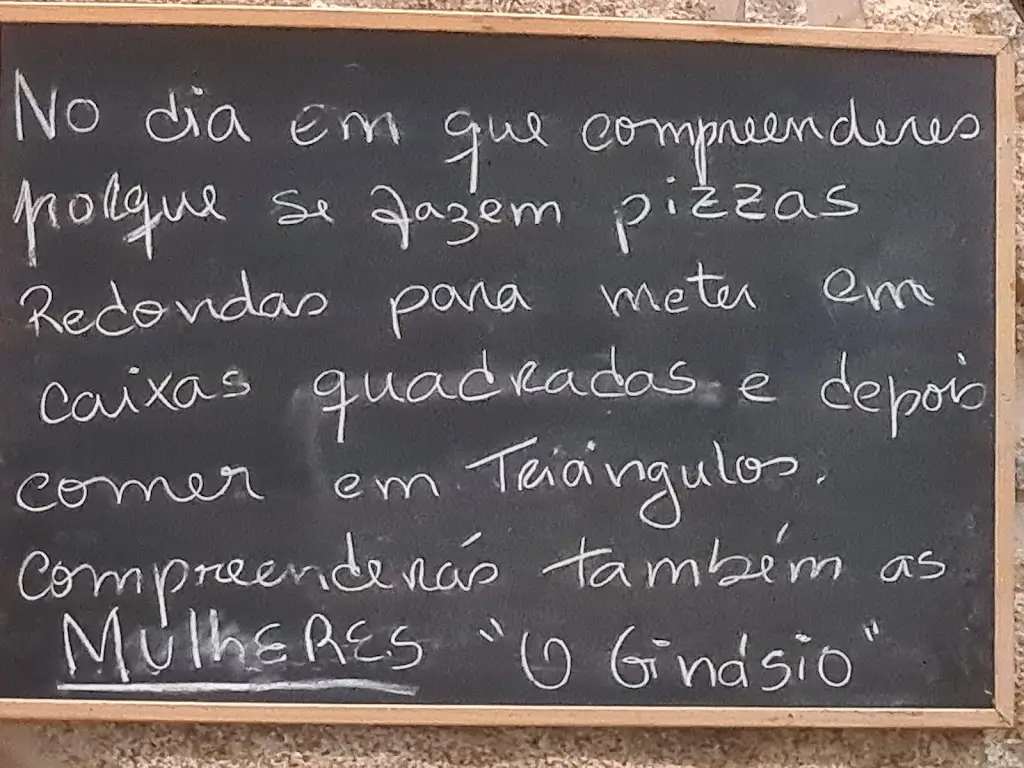 No dia em que compreenderes
porque se fazem pizzas
Redondas para meter em
caixas quadradas e depois
comer em Triângulos.
compreenderás também as
MulhERES "O Ginásio"